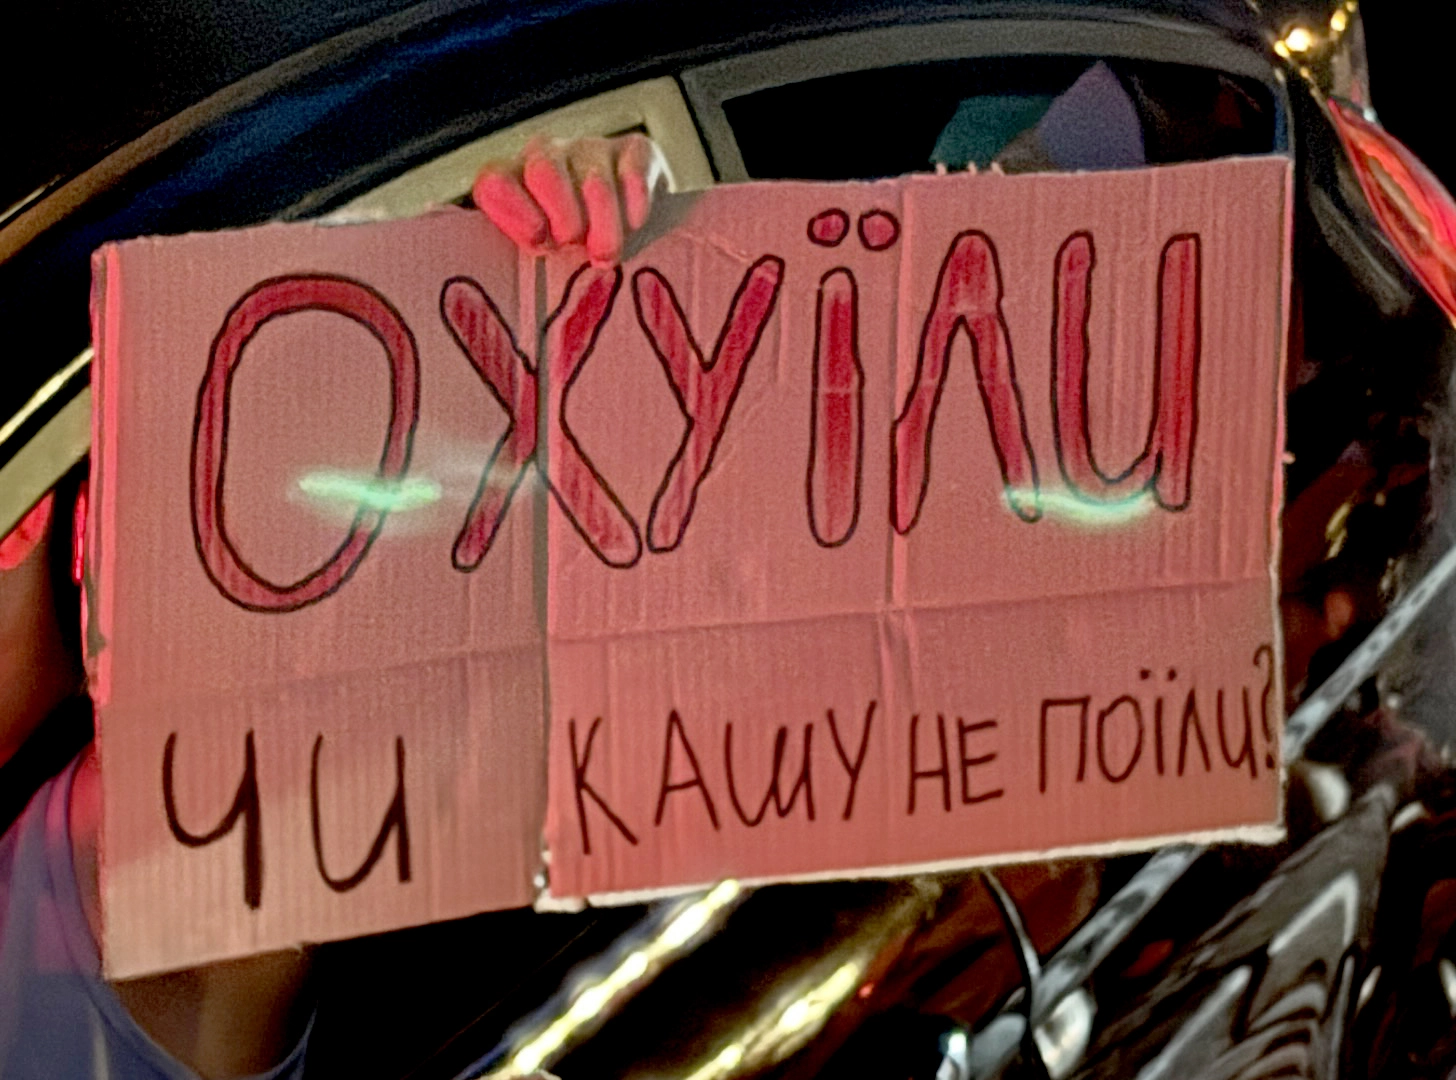 ОХУЇЛИ
ЧИ КАШУ НЕ ПОЇЛИ?